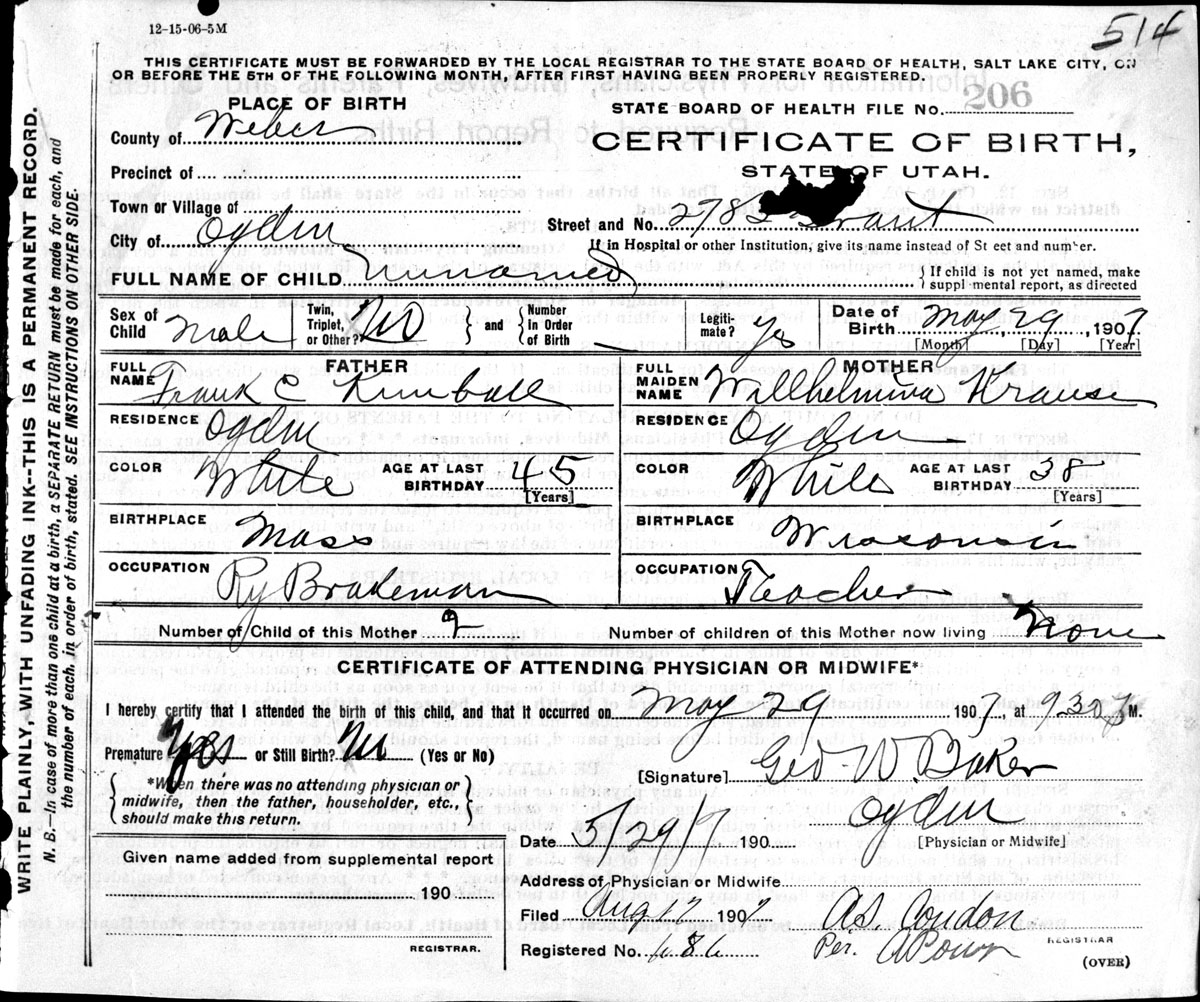 12-15-06-5M
514
THIS CERTIFICATE MUST BE FORWARDED BY THE LOCAL REGISTRAR TO THE STATE BOARD OF HEALTH, SALT LAKE CITY, ON
OR BEFORE THE 5TH OF THE FOLLOWING MONTH, AFTER FIRST HAVING BEEN PROPERLY REGISTERED.
PLACE OF BIRTH
STATE BOARD OF HEALTH FILE No. 206
County of Weber
CERTIFICATE OF BIRTH,
Precinct of
STATE OF UTAH.
Town or Village of
Street and No. 278
City of Ogden
If in Hospital or other Institution, give its name instead of St eet and number.
FULL NAME OF CHILD Unnamed
If child is not yet named, make
suppl mental report, as directed
Sex of Child Male
Twin, Triplet, or Other? No
and
Number in Order of Birth
Legiti-mate? Yes
Date of Birth May 29 1907
[Month] [Day] [Year]
FATHER
FULL NAME Frank C Kimball
RESIDENCE Ogden
COLOR White AGE AT LAST BIRTHDAY 45 [Years]
BIRTHPLACE Mass
OCCUPATION Ry Brakeman
MOTHER
FULL MAIDEN NAME Willhelmina Krause
RESIDENCE Ogden
COLOR White AGE AT LAST BIRTHDAY 38 [Years]
BIRTHPLACE Wisconsin
OCCUPATION Teacher
Number of Child of this Mother 2
Number of children of this Mother now living None
CERTIFICATE OF ATTENDING PHYSICIAN OR MIDWIFE*
I hereby certify that I attended the birth of this child, and that it occurred on May 29 1907, 930
Premature Yes or Still Birth? No (Yes or No)
*When there was no attending physician or
midwife, then the father, householder, etc.,
should make this return.
[Signature] Geo W. Baker
Ogden
[Physician or Midwife]
Date 5/29/7 190
Given name added from supplemental report
190
REGISTRAR.
Address of Physician or Midwife
Filed Aug 17 1907
A.S. Condon
REGISTRAR
Registered No. 686
Per.
(OVER)
WRITE PLAINLY WITH UNFADING INK--THIS IS A PERMANENT RECORD.
N. B.—In case of more than one child at a birth, a SEPARATE RETURN must be made for each, and
the number of each, in order of birth, stated. SEE INSTRUCTIONS ON OTHER SIDE.